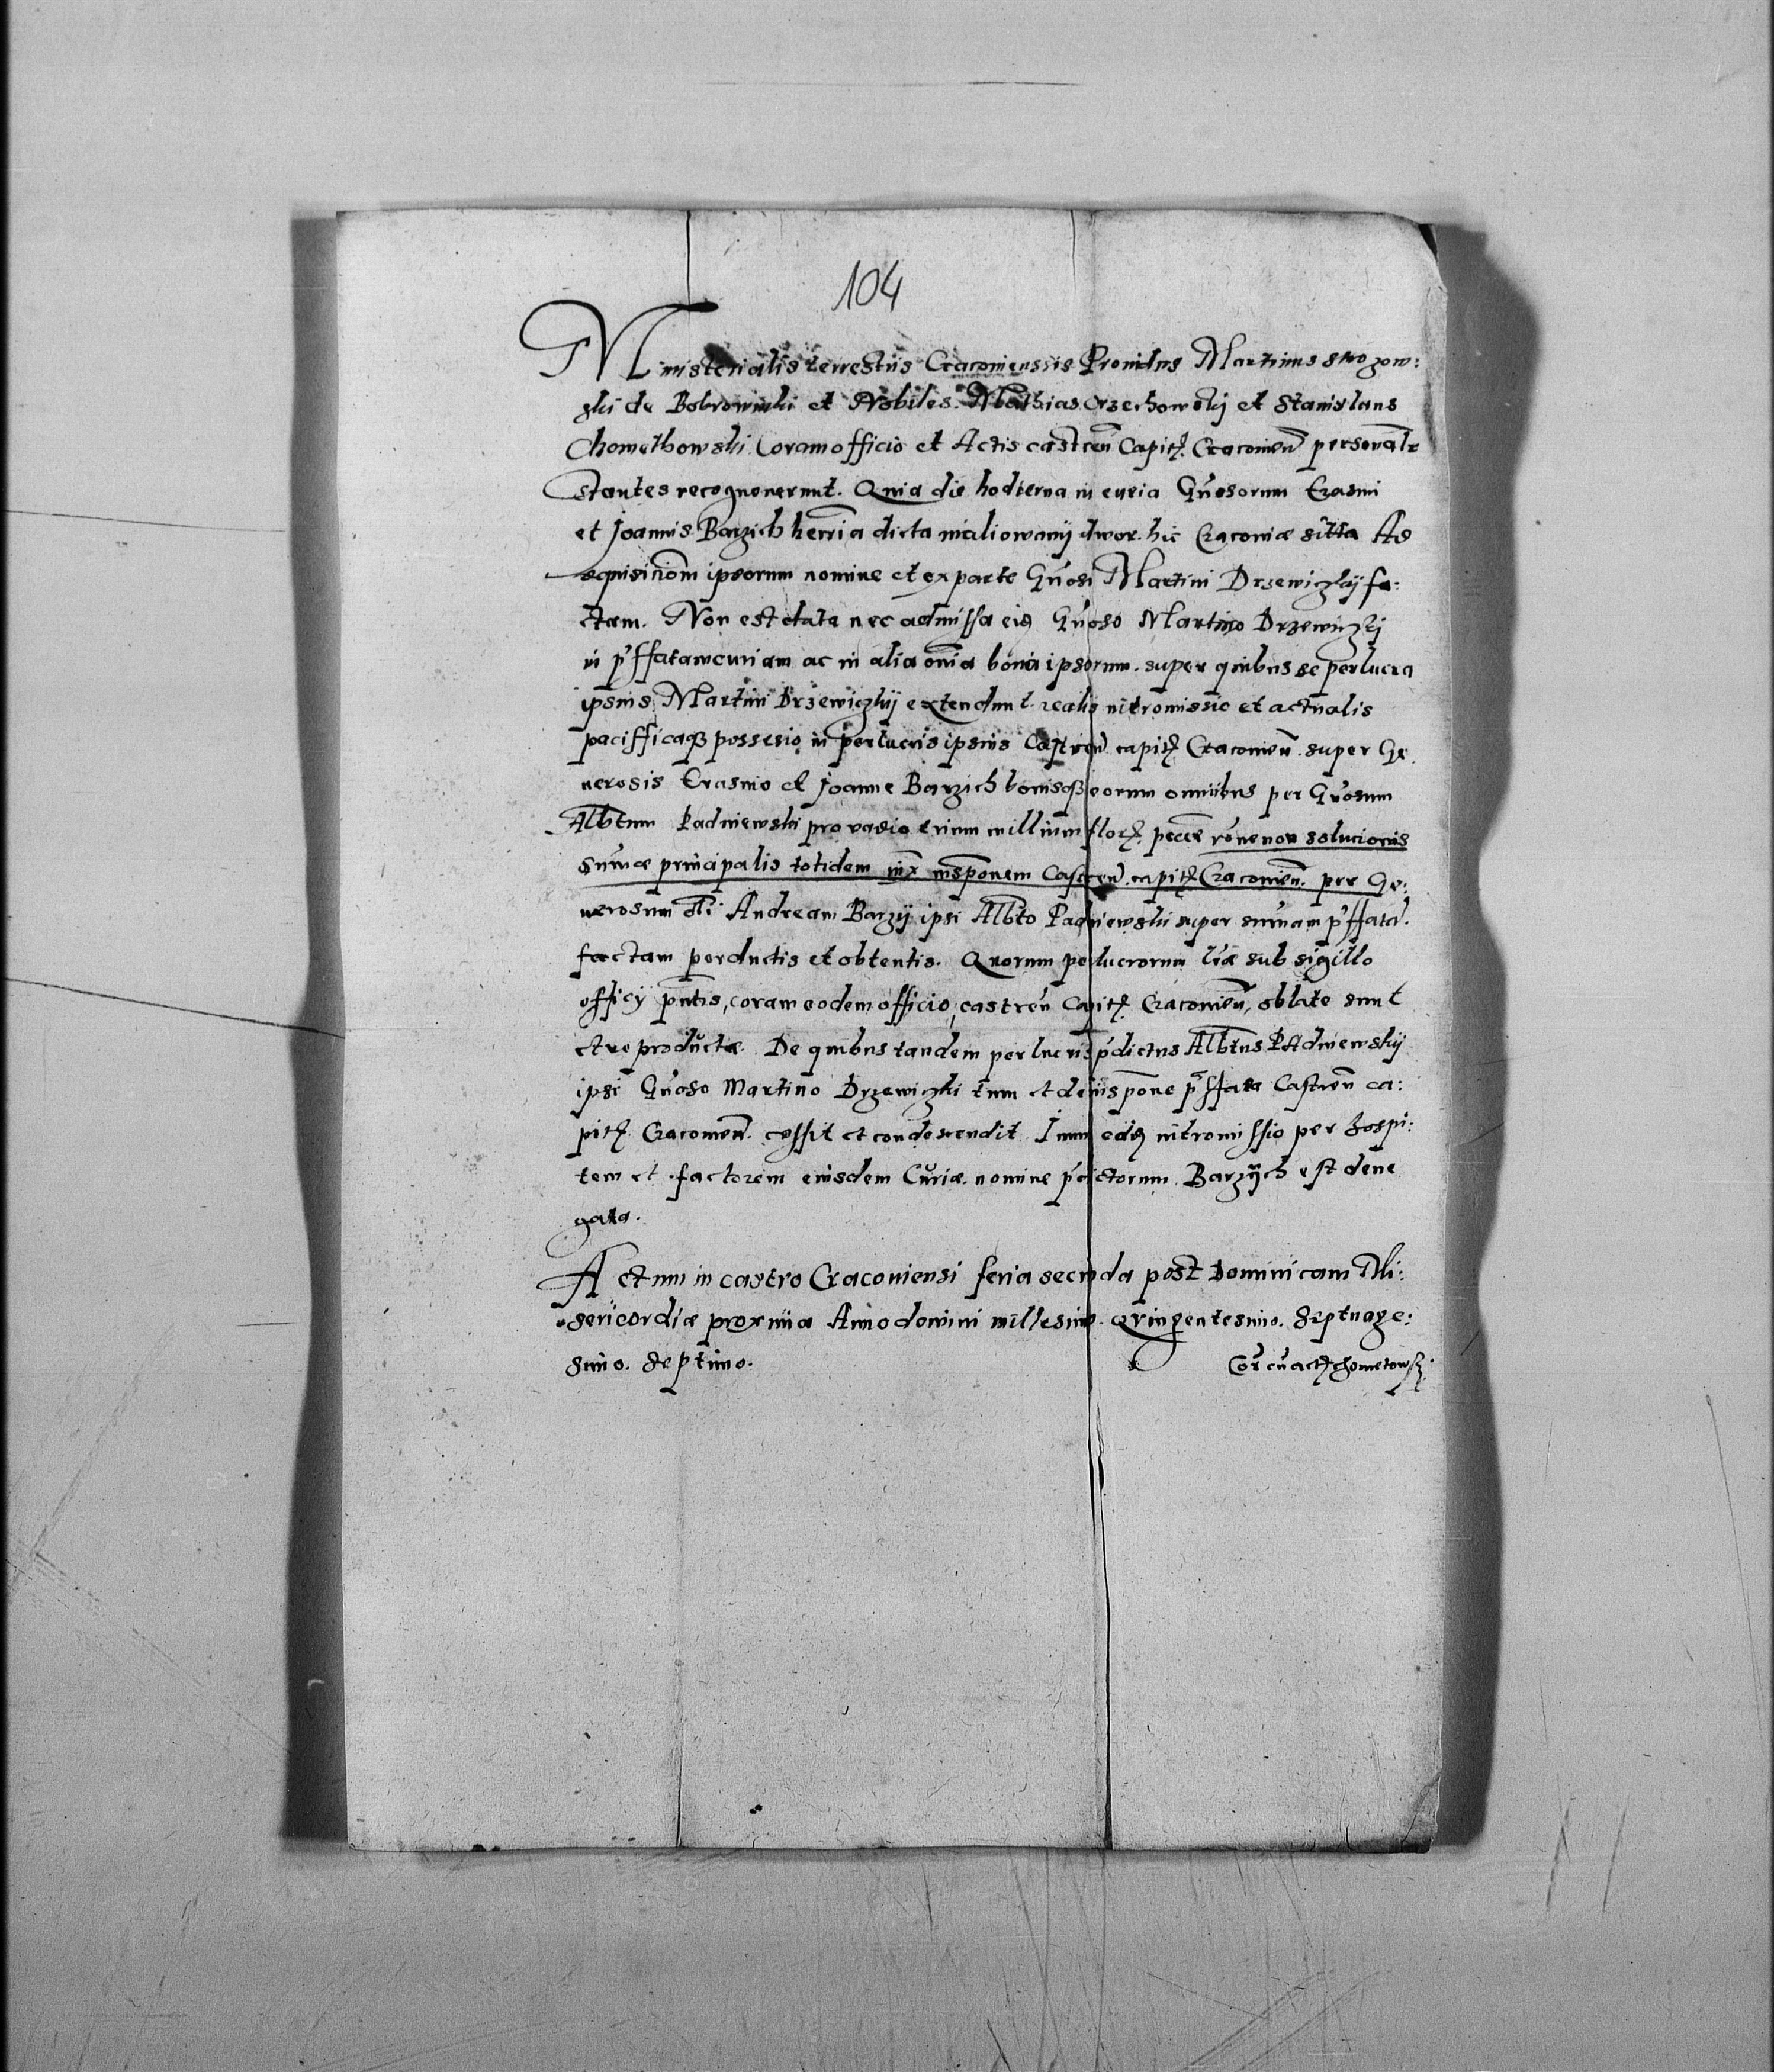 104
Ministerialis terrestris Cracoviensis Providus Martinus
ski de Bobrowniki et Nobiles. Mathias Orzechowskj et Stanislaus
Chomethowski Coram officio et Actis castren Capit. Cracovien personalr
stantes recognoverunt. Quia die hodierna in curia Gnosorum Erasmi
et Joannis Barzich herria dicta maliowanij dwor. hic Cracoviæ sitta Ad
requisicionem ipsorum nomine et ex parte Gnosi Martini Drzewiczkij fa:
ctam. Non est data nec admissa eiq Gnoso Martino Drzewiczkj
in pffatam curiam ac in alia onia bona ipsorum. super quibus se per lucra
ipsius Martini Drzewiczkij extendunt. realis intromissio et actualis
pacifficaqз possesio in per lucris ipsius Castren capit. Cracovien. super Ge:
nerosis Erasmo et Joanne Barzich bonisqз eorum omnibus per Gnosum
Albtum Padniewski pro vadio trium millium flor. pecce rone non solucionis
sumæ principalis totidem iux inspcionem Castren. capit. Cracovien. per Ge:
nerosum oli Andream Barzij ipsi Albto Padniewski super sumam pffatd.
factam perductis et obtentis. Quorum per lucrorum lræ sub sigillo
officij pntis, coram eodem officio, castren Capit. Cracovien, oblate sunt
et reproductæ. De quibus tandem per lucris pdictus Albtus Padniewskij
ipsi Gnoso Martino Drzewiczki tum et de inspone pffata Castren ca:
pit. Cracovien. cessit et condescendit. Imm ediq intromissio per hospi:
tem et factorem eiusdem Curiæ. nomine pdictorum. Barzÿch est dene
gata.
Actum in castro Cracoviensi feria secunda post Dominicam Mi:
sericordiæ proxima Anno domini millesimo. Qvingentesimo. Septuage:
simo. Septimo.
Cor cu act. Chometowsz.